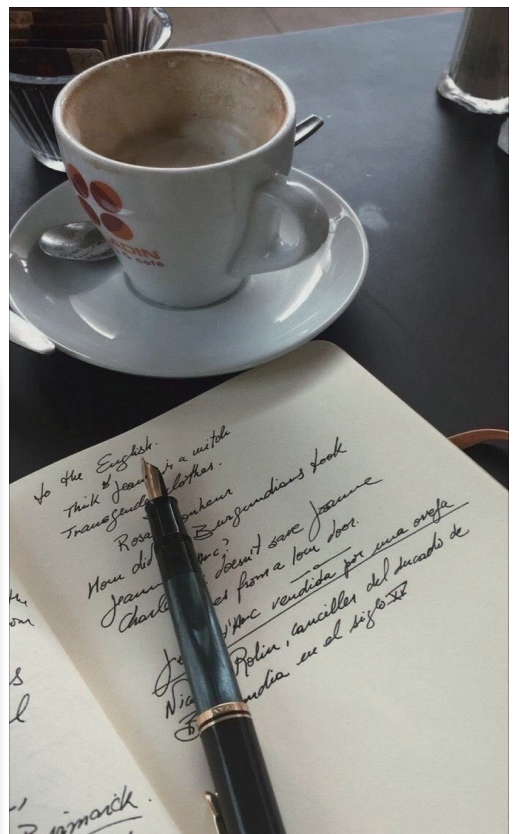 ADIN
café
to the English.
Think Jeanne is a witch
Transgender clothes.
Rosa Bonheur
How did Burgundians took
Jeanne d'Arc?
Charles doesn't save Jeanne
from a low door.
d'Arc vendida por una oveja
Rolin, canciller del ducado de
en el siglo XV
Bismarck.